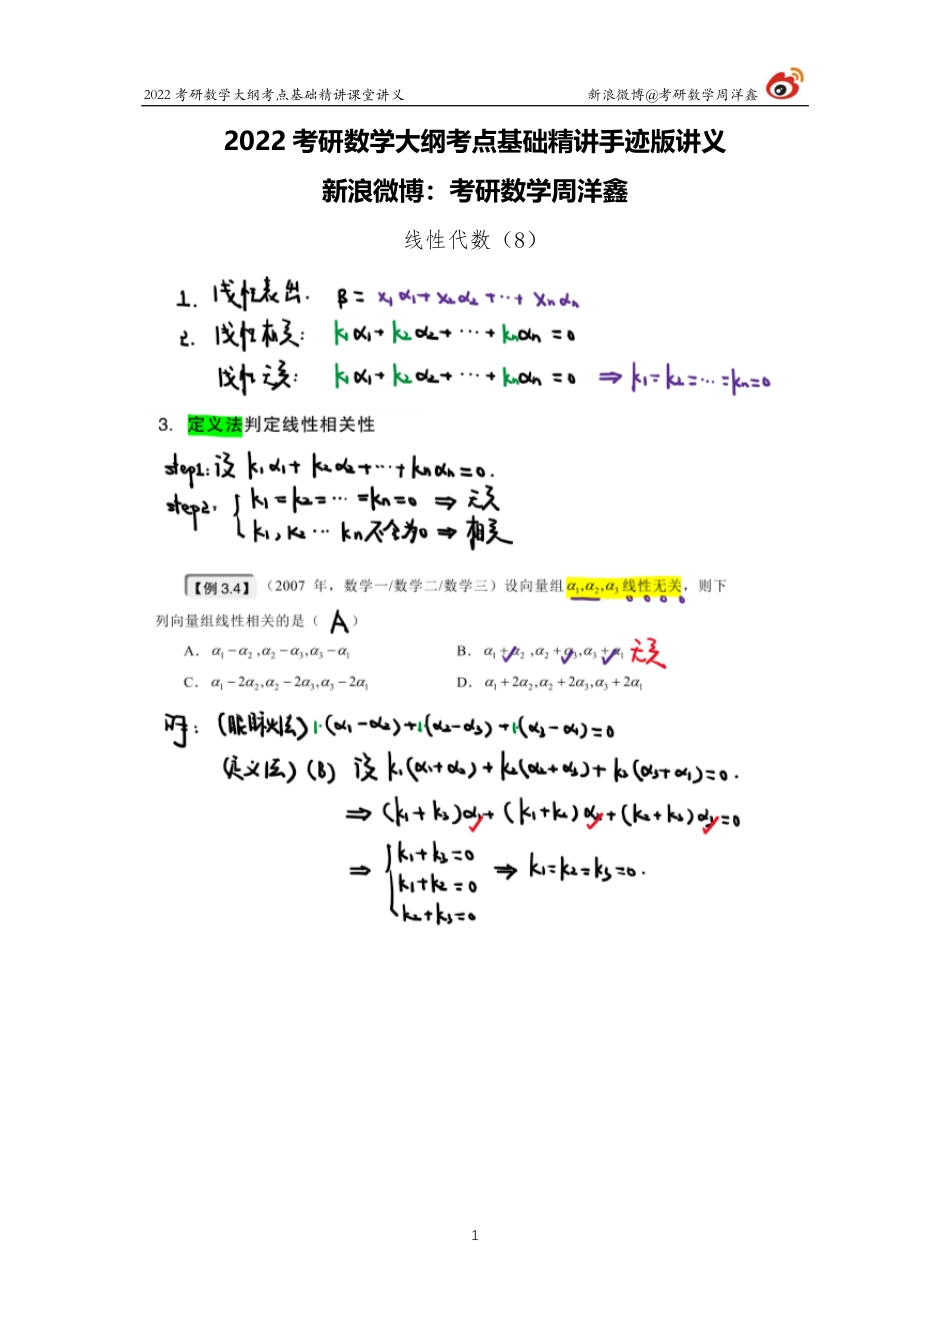 2022 考研数学大纲考点基础精讲课堂讲义 新浪微博@考研数学周洋鑫
2022 考研数学大纲考点基础精讲手迹版讲义
新浪微博：考研数学周洋鑫
线性代数（8）
1. 线性表出. β = x₁α₁+x₂α₂+…+xₙαₙ
2. 线性相关: k₁α₁+k₂α₂+…+kₙαₙ=0
线性无关: k₁α₁+k₂α₂+…+kₙαₙ=0 ⇒ k₁=k₂=…=kₙ=0
3. 定义法判定线性相关性
step1: 设 k₁α₁+k₂α₂+…+kₙαₙ=0.
step2. { k₁=k₂=…=kₙ=0 ⇒ 无关
k₁,k₂…kₙ不全为0 ⇒ 相关
【例 3.4】（2007 年，数学一/数学二/数学三）设向量组 α₁,α₂,α₃ 线性无关，则下
列向量组线性相关的是（ A ）
A. α₁−α₂,α₂−α₃,α₃−α₁ B. α₁+α₂,α₂+α₃,α₃+α₁ 无关
C. α₁−2α₂,α₂−2α₃,α₃−2α₁ D. α₁+2α₂,α₂+2α₃,α₃+2α₁
(眼瞅法) 1·(α₁−α₂)+1·(α₂−α₃)+1·(α₃−α₁)=0
(定义法) (B) 设 k₁(α₁+α₂)+k₂(α₂+α₃)+k₃(α₃+α₁)=0.
⇒ (k₁+k₃)α₁+(k₁+k₂)α₂+(k₂+k₃)α₃=0
⇒ { k₁+k₃=0 ⇒ k₁=k₂=k₃=0.
k₁+k₂=0
k₂+k₃=0
1